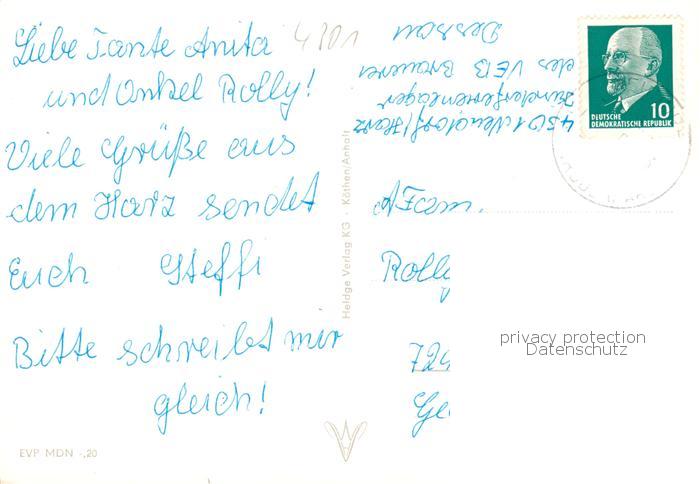 Liebe Tante Anita
und Onkel Rolly!
Viele Grüße aus
dem Harz sendet
Euch Steffi
Bitte schreibt mir
gleich!
EVP MDN -,20
4301
Heldge Verlag KG · Köthen/Anhalt
4301 Neudorf/Harz
Kinderferienlager
des VEB Brauerei
Dessau
DEUTSCHE
DEMOKRATISCHE REPUBLIK
10
Fam.
Rolly
724
Ge
privacy protection
Datenschutz